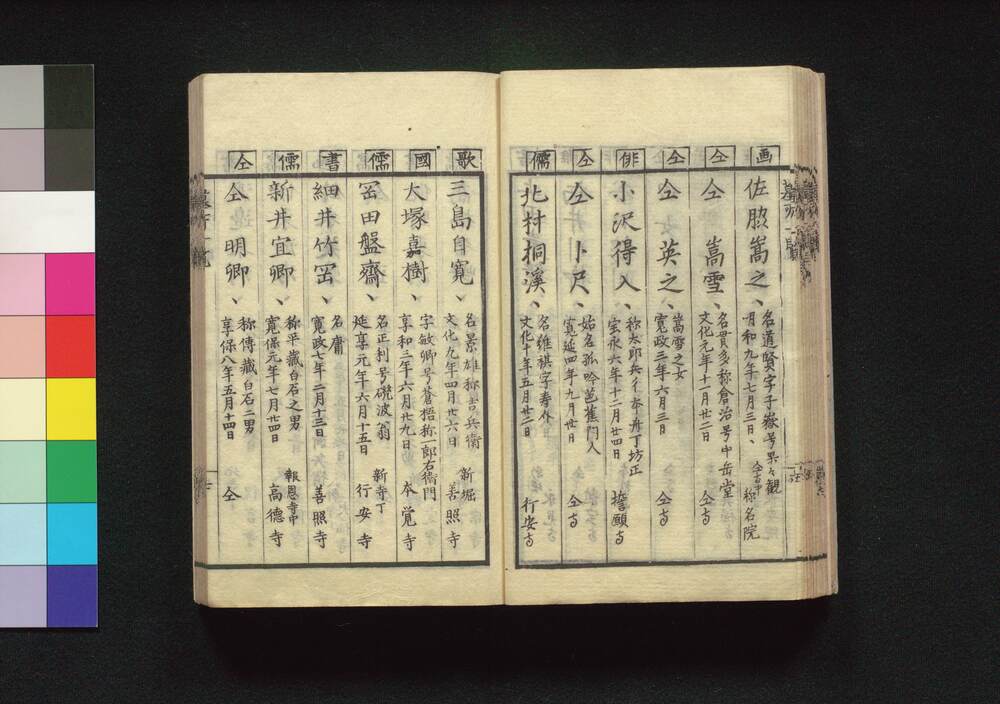 画
佐脇嵩之、
名道賢字子嶽号果々観
明和九年七月三日、
仝寺中
称名院
仝
仝 嵩雪、
名貫多称倉治号中岳堂
文化元年十二月廿二日
仝寺
仝
仝 英之、
嵩雪之女
寛政三年六月三日
仝寺
俳
小沢得入、
称太郎兵ヱ本舟丁坊正
宝永六年十二月廿四日
誓願寺
仝
仝 卜尺、
始名孤吟芭蕉門人
寛延四年九月廿日
仝寺
儒
北村桐渓、
名維祺字寿外
文化十年五月廿二日
行安寺
歌
三島自寛、
名景雄称吉兵衛
文化九年四月廿六日
新堀
善照寺
國
大塚嘉樹、
字敏卿号蒼梧称一郎右衛門
享和三年六月廿九日
本覚寺
儒
岡田盤齋、
名正利号磯波翁
延享元年六月十五日
新寺丁
行安寺
書
細井竹岡、
名庸
寛政七年二月十三日
善照寺
儒
新井宜卿、
称平蔵白石之男
寛保元年七月廿四日
報恩寺中
高德寺
仝
仝 明卿、
称傳藏白石二男
享保八年五月十四日
仝